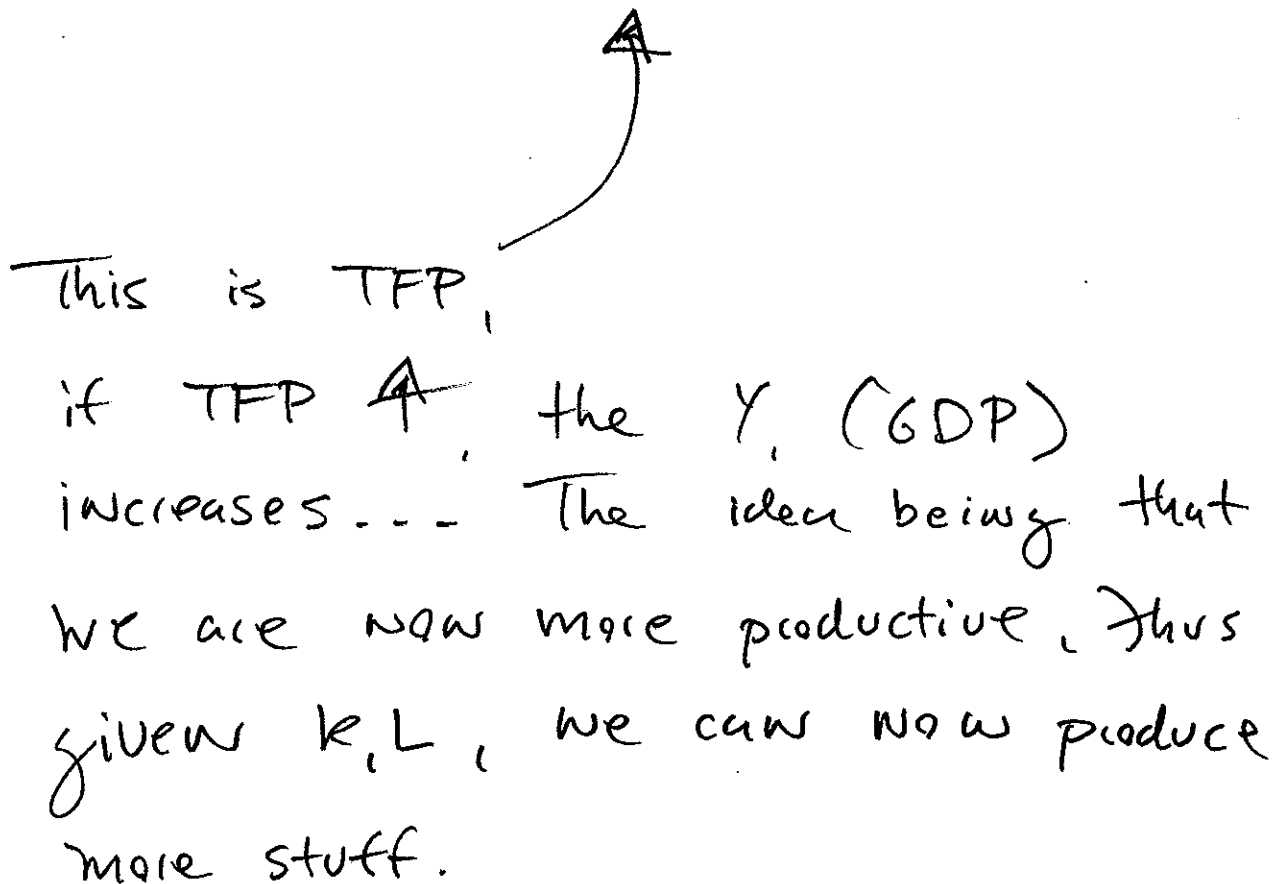 This is TFP,
if TFP ↑, the Y, (GDP)
increases... The idea being that
we are now more productive, thus
given k, L, we can now produce
more stuff.